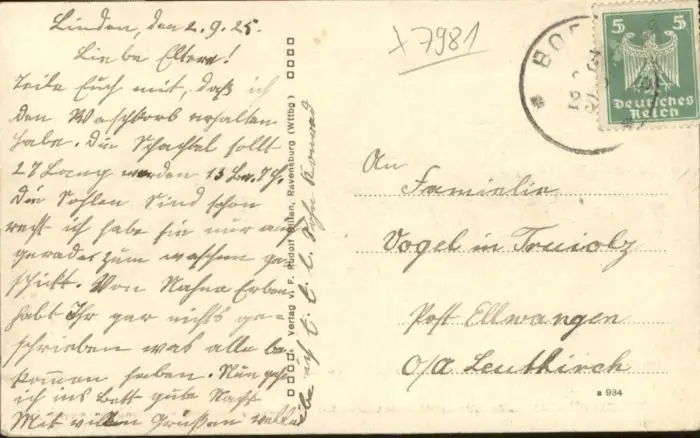 Linden, den 2.9.25.
Liebe Eltern!
Teile Euch mit, daß ich
den Waschkorb erhalten
habe. Die Schachtel sollt
27 Lang werden 15 Br. 7 H.
Die Sohlen Sind schon
recht ich habe sie nur auch
gerade zum waschen ge-
schikt. Von Nahna Erben
habt Ihr gar nichts ge-
schrieben was alle be-
kommen haben. Nun gehe
ich ins Bett gute Nacht
Mit vielen Grüßen
ich E. l. Sohn Konrad
Verlag v. F. Rudolf Bitlan, Ravensburg (Wttbg)
x 7981
5 5
Deutsches
Reich
An
Familie
Vogel in Truiolz
Post Ellwangen
O/A Leutkirch
a 934